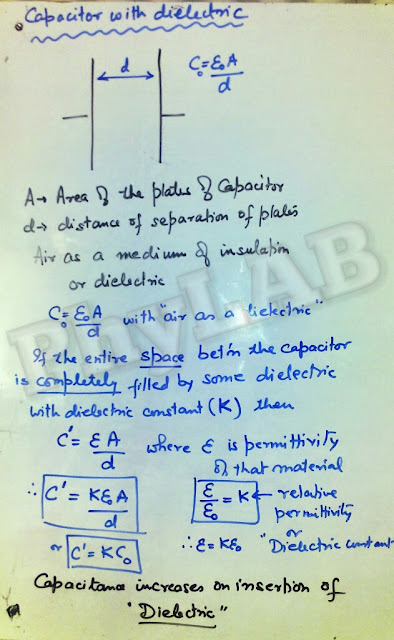 Capacitor with dielectric
d
C₀ = ε₀A/d
A → Area of the plates of Capacitor
d → distance of separation of plates
Air as a medium of insulation
or dielectric
C₀ = ε₀A/d with "air as a dielectric"
If the entire space betⁿ the capacitor
is completely filled by some dielectric
with dielectric constant (K) then
C' = εA/d where ε is permittivity
of that material
∴ C' = Kε₀A/d
ε/ε₀ = K ← relative
permittivity
or
or C' = KC₀
∴ ε = Kε₀ "Dielectric constant
Capacitance increases on insertion of
"Dielectric"
PhyLAB